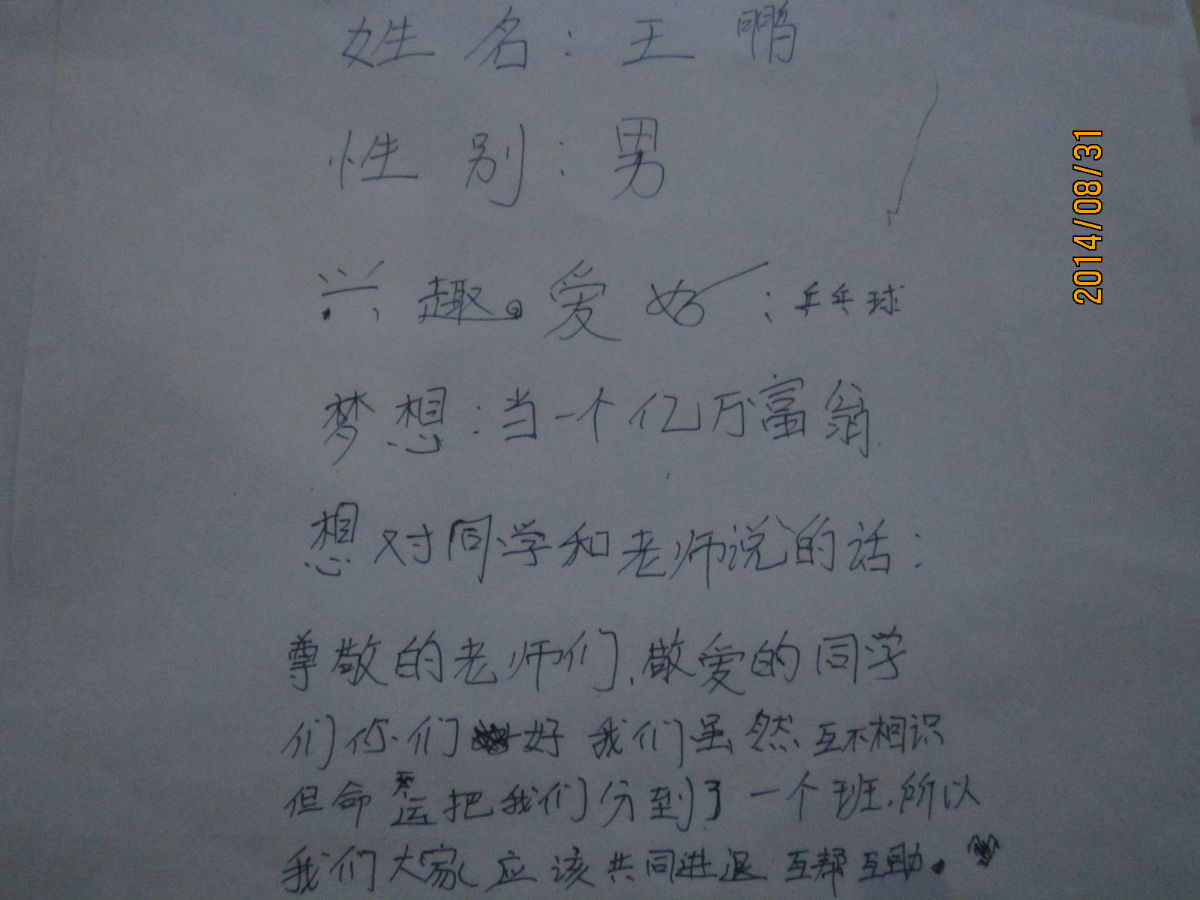 姓名：王鹏
性别：男
兴趣。爱好：乒乓球
梦想：当一个亿万富翁
想对同学和老师说的话：
尊敬的老师们，敬爱的同学
们你们好 我们虽然互不相识
但命运把我们分到了一个班，所以
我们大家应该共同进退 互帮互助。
2014/08/31